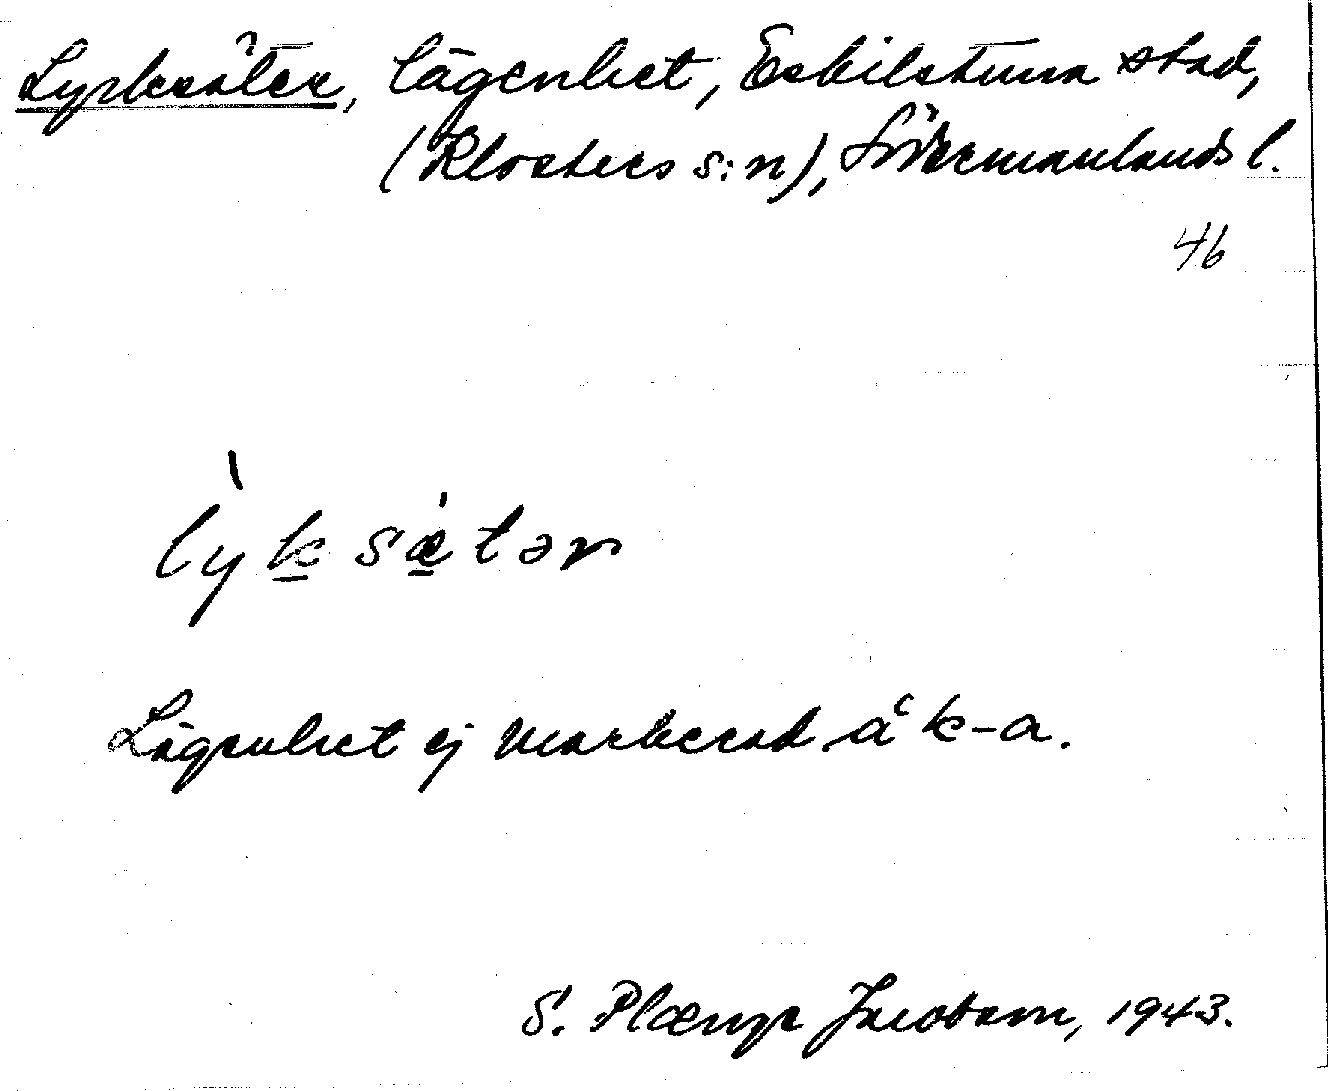 Lycksäter, lägenhet, Eskilstuna stad,
(Klosters s:n), Södermanlands l.
46
lỳksǽtər
Lägenhet ej markerad å k-a.
S. Plænge Jacobson, 1943.